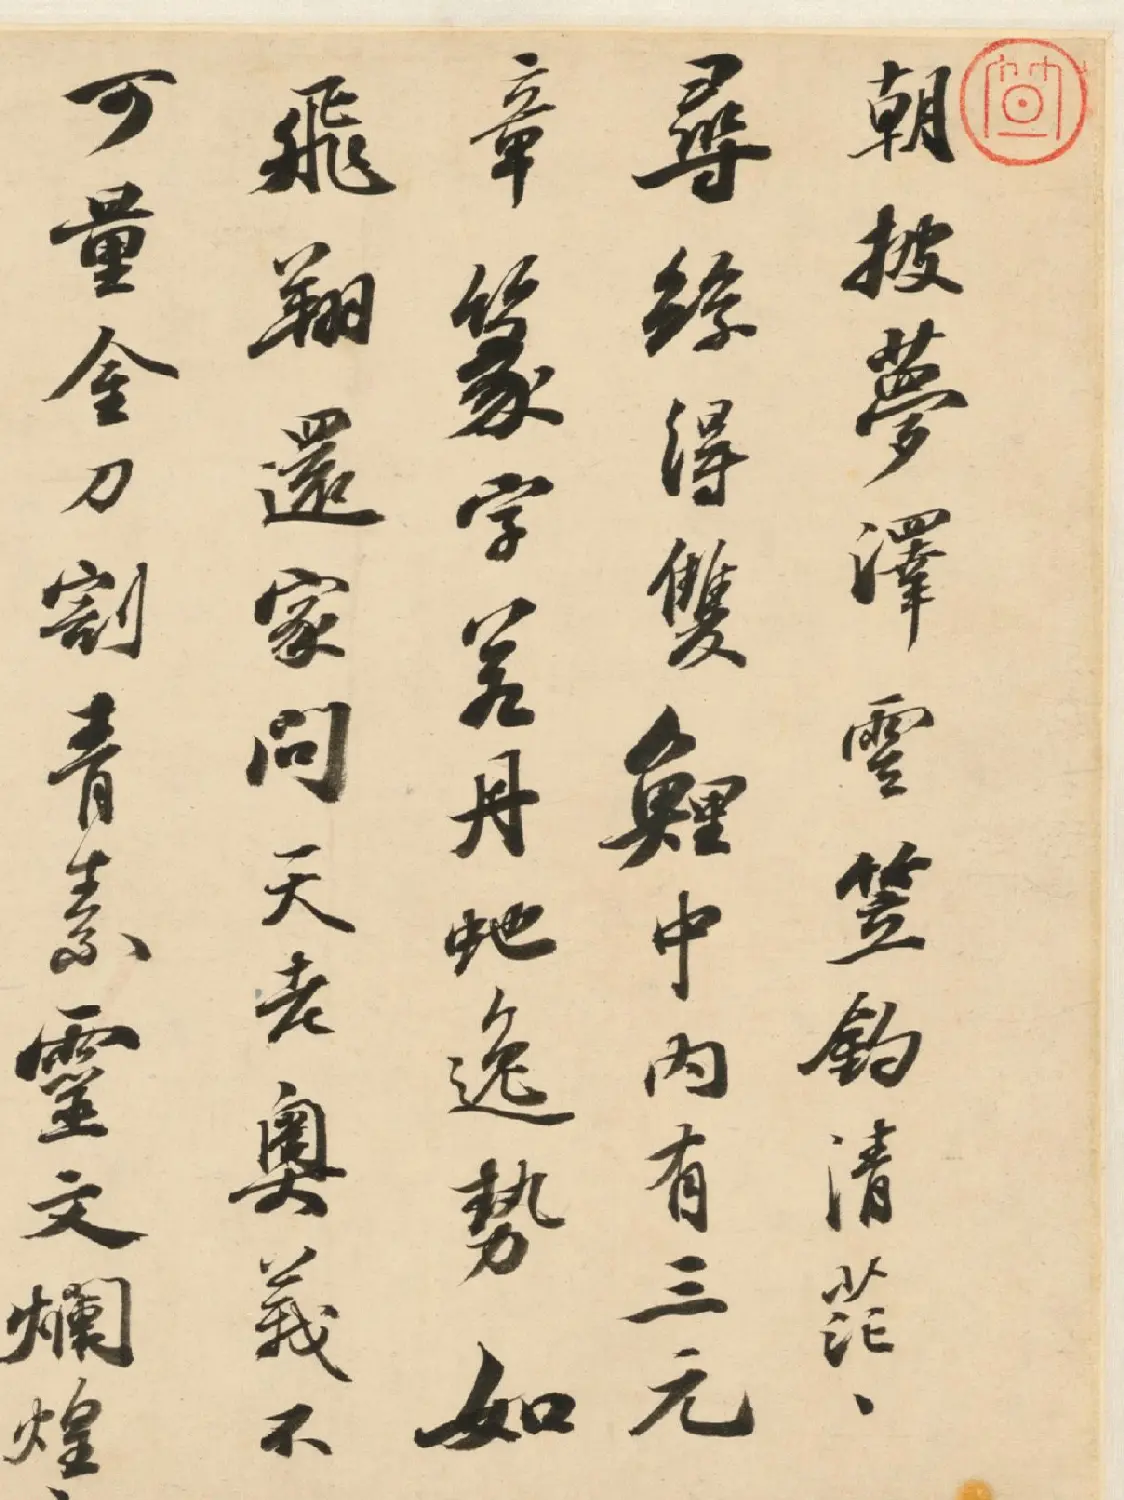 朝披夢澤雲笠釣清茫、
尋絲得雙鯉中內有三元
章篆字若丹虵逸勢如
飛翔還家問天老奧義不
可量金刀割青素靈文爛煌